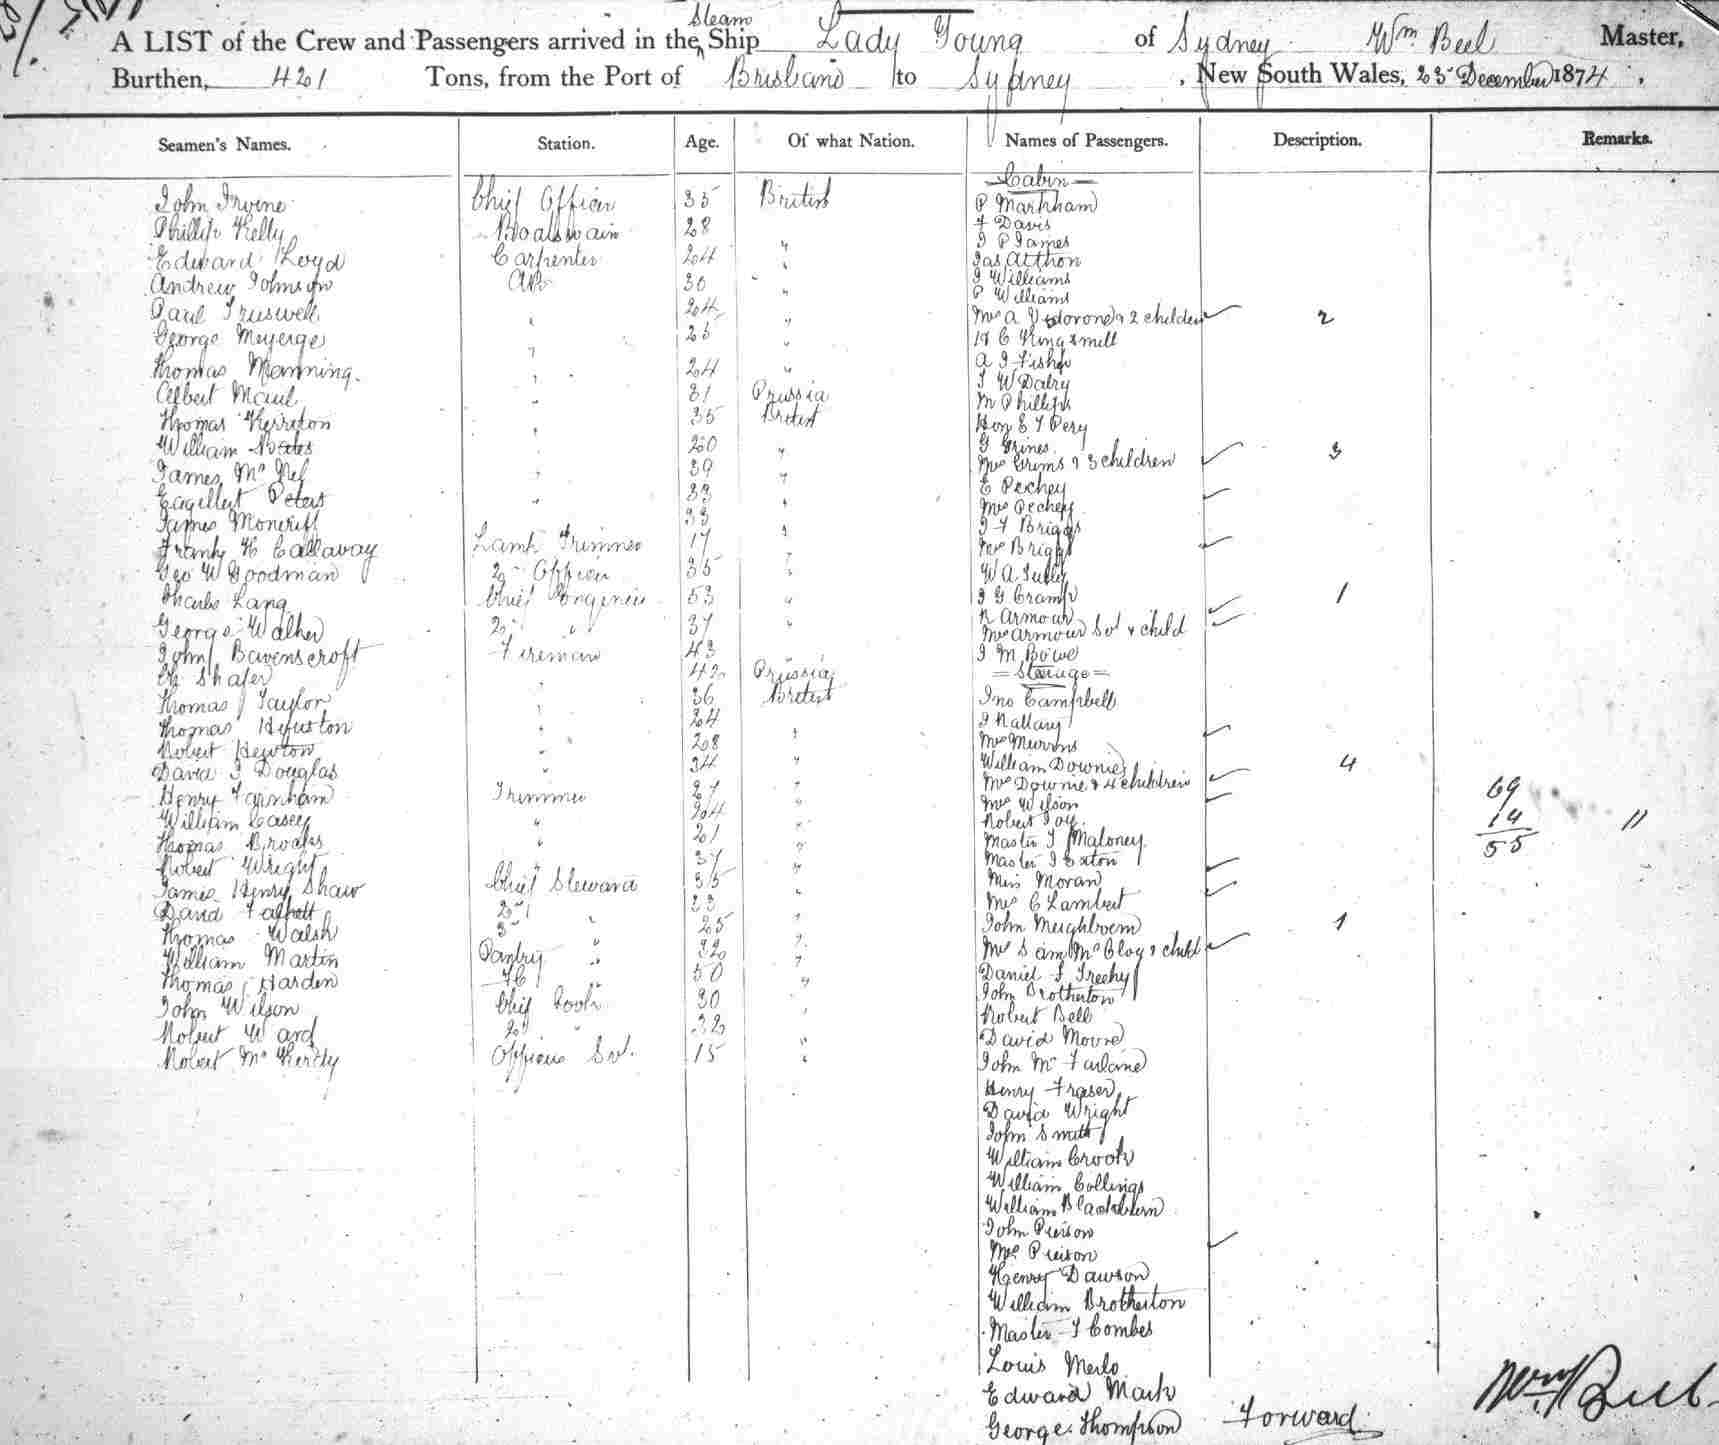 Steam
A LIST of the Crew and Passengers arrived in the Ship Lady Young of Sydney Wm Beel Master,
Burthen, 421 Tons, from the Port of Brisbane to Sydney, New South Wales, 23 December 1874.
Seamen's Names. Station. Age. Of what Nation. Names of Passengers. Description. Remarks.
Cabin
John Irvine Chief Officer 35 British P Markham
Phillip Kelly Boatswain 28 F Davis
J P James
Edward Loyd Carpenter 24 " Jas Atthon
Andrew Johnson AB 30 " J Williams
P Williams
Paul Truswell 24 " Mrs A & 2 children 2
George Meyerge " 25 " Kingsmill
Thomas Manning " 24 " A J Fisher
J W Dalry
Albert Maul " 31 Prussia M Phillips
Thomas Kerriton " 35 British Hon E J Pery
William " 20 " G Grines
James Mc Nel " 39 " Mrs Grims & 3 children 3
Peters " 33 " E Pechey
James Moncriff 33 " Mrs Pechey
J F Briggs
Frank H Callaway Lamp Trimmer 17 " Mrs Briggs
Geo W Goodman 2nd Officer 35 " W A Tully
Charles Lang Chief Engineer 53 " J G Cramp 1
R Armour
George Walker 2nd " 37 " Mrs Armour Svt & child
John Bavenscroft Fireman 43 " J M Bowe
Shafer " 42 Prussia Steerage
Thomas J Taylor " 36 British Jno Campbell
Thomas " 24 J Rallary
Robert Hewton " 28 " Mrs Murrins
David J Douglas " 34 " William Downie 4
Henry Farnham Trimmer 27 " Mrs Downie & 4 children 69
William Casey " 24 " Mrs Wilson 14 11
Robert Joy 55
Thomas Brooks " 21 " Master T Maloney
Robert Wright " 37 " Master J Exton
James Henry Shaw Chief Steward 35 " Miss Moran
David 2nd " 23 " Mrs C Lambert
Thomas Walsh 3rd " 25 " John Meighboem 1
William Martin Pantry " 32 " Mrs Sam Mc Cloy & child
Thomas Harden 50 " Daniel F Freehy
John Wilson Chief Cook 30 " John Brotherton
Robert Ward 2nd " 32 " Robert Bell
Robert Mc Kerdy Officers Svt. 15 " David Moore
John Mc Farlane
Henry Fraser
David Wright
John Smith
William Crook
William Collings
William Blackburn
John Pierson
Mrs Pierson
Henry Dawson
William Brotherton
Master T Combes
Louis Merlo
Edward Mark
George Thompson Forward
Wm Beel